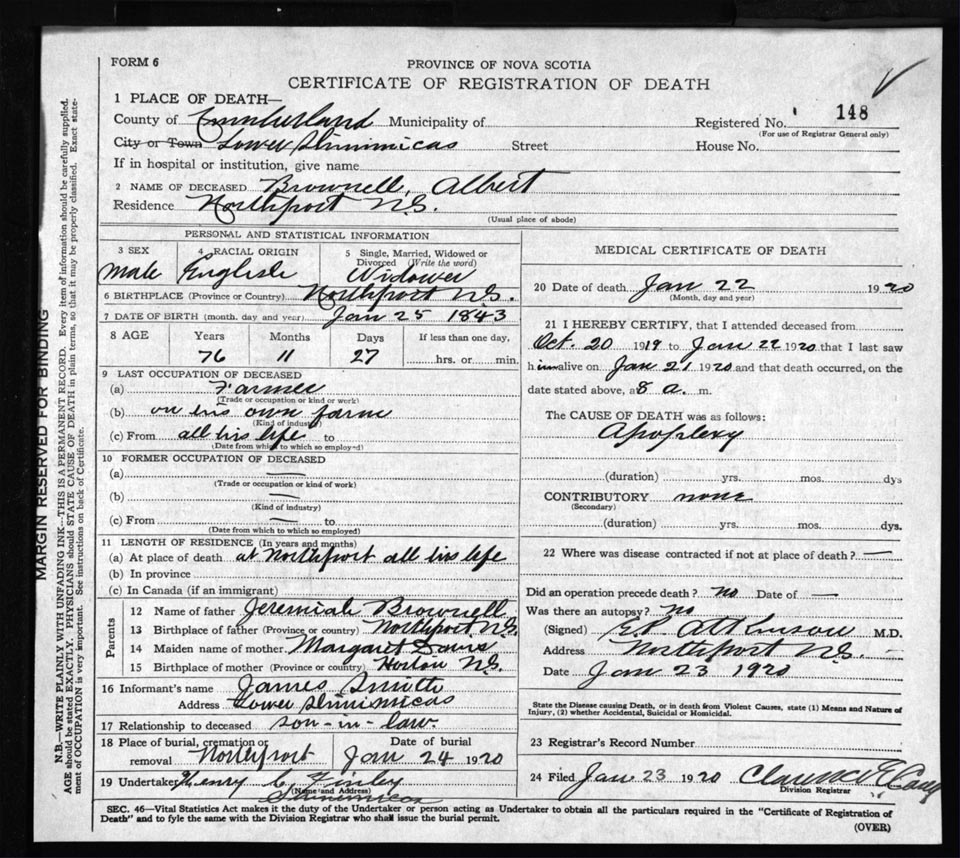 FORM 6
PROVINCE OF NOVA SCOTIA
CERTIFICATE OF REGISTRATION OF DEATH
1 PLACE OF DEATH—
County of Cumberland Municipality of
Registered No. 148
(For use of Registrar General only)
City or Town Lower Shinimicas Street House No.
If in hospital or institution, give name
2 NAME OF DECEASED Brownell, Albert
Residence Northport N.S.
(Usual place of abode)
PERSONAL AND STATISTICAL INFORMATION
3 SEX Male
4 RACIAL ORIGIN English
5 Single, Married, Widowed or Divorced (Write the word) Widower
6 BIRTHPLACE (Province or Country) Northport N.S.
7 DATE OF BIRTH (month, day and year) Jan 25 1843
8 AGE Years Months Days If less than one day,
76 11 27 hrs. or min.
9 LAST OCCUPATION OF DECEASED
(a) Farmer
(Trade or occupation or kind of work)
(b) on his own farm
(Kind of industry)
(c) From all his life to
(Date from which to which so employed)
10 FORMER OCCUPATION OF DECEASED
(a) —
(Trade or occupation or kind of work)
(b) —
(Kind of industry)
(c) From — to
(Date from which to which so employed)
11 LENGTH OF RESIDENCE (In years and months)
(a) At place of death at Northport all his life
(b) In province
(c) In Canada (if an immigrant)
Parents
12 Name of father Jeremiah Brownell
13 Birthplace of father (Province or country) Northport N.S.
14 Maiden name of mother Margaret Davis
15 Birthplace of mother (Province or country) Horton N.S.
16 Informant's name James Smith
Address Lower Shinimicas
17 Relationship to deceased son-in-law.
18 Place of burial, cremation or removal Northport
Date of burial Jan 24 1920
19 Undertaker Henry C. Finley
(Name and Address)
Shinimicas
MEDICAL CERTIFICATE OF DEATH
20 Date of death Jan 22 1920
(Month, day and year)
21 I HEREBY CERTIFY, that I attended deceased from
Oct. 20 1919 to Jan 22 1920 that I last saw
him alive on Jan 21 1920 and that death occurred, on the
date stated above, at 8 a. m.
The CAUSE OF DEATH was as follows:
Apoplexy
(duration) yrs. mos. dys
CONTRIBUTORY none
(Secondary)
(duration) yrs. mos. dys.
22 Where was disease contracted if not at place of death? —
Did an operation precede death? no Date of —
Was there an autopsy? no
(Signed) Atkinson M.D.
Address Northport N.S.
Date Jan 23 1920
State the Disease causing Death, or in death from Violent Causes, state (1) Means and Nature of
Injury, (2) whether Accidental, Suicidal or Homicidal.
23 Registrar's Record Number
24 Filed Jan 23 1920 Clarence
Division Registrar
SEC. 46—Vital Statistics Act makes it the duty of the Undertaker or person acting as Undertaker to obtain all the particulars required in the "Certificate of Registration of
Death" and to fyle the same with the Division Registrar who shall issue the burial permit.
(OVER)
MARGIN RESERVED FOR BINDING
N.B.—WRITE PLAINLY WITH UNFADING INK—THIS IS A PERMANENT RECORD. Every item of information should be carefully supplied.
AGE should be stated EXACTLY. PHYSICIANS should STATE CAUSE OF DEATH in plain terms, so that it may be properly classified. Exact state-
ment of OCCUPATION is very important. See instructions on back of Certificate.